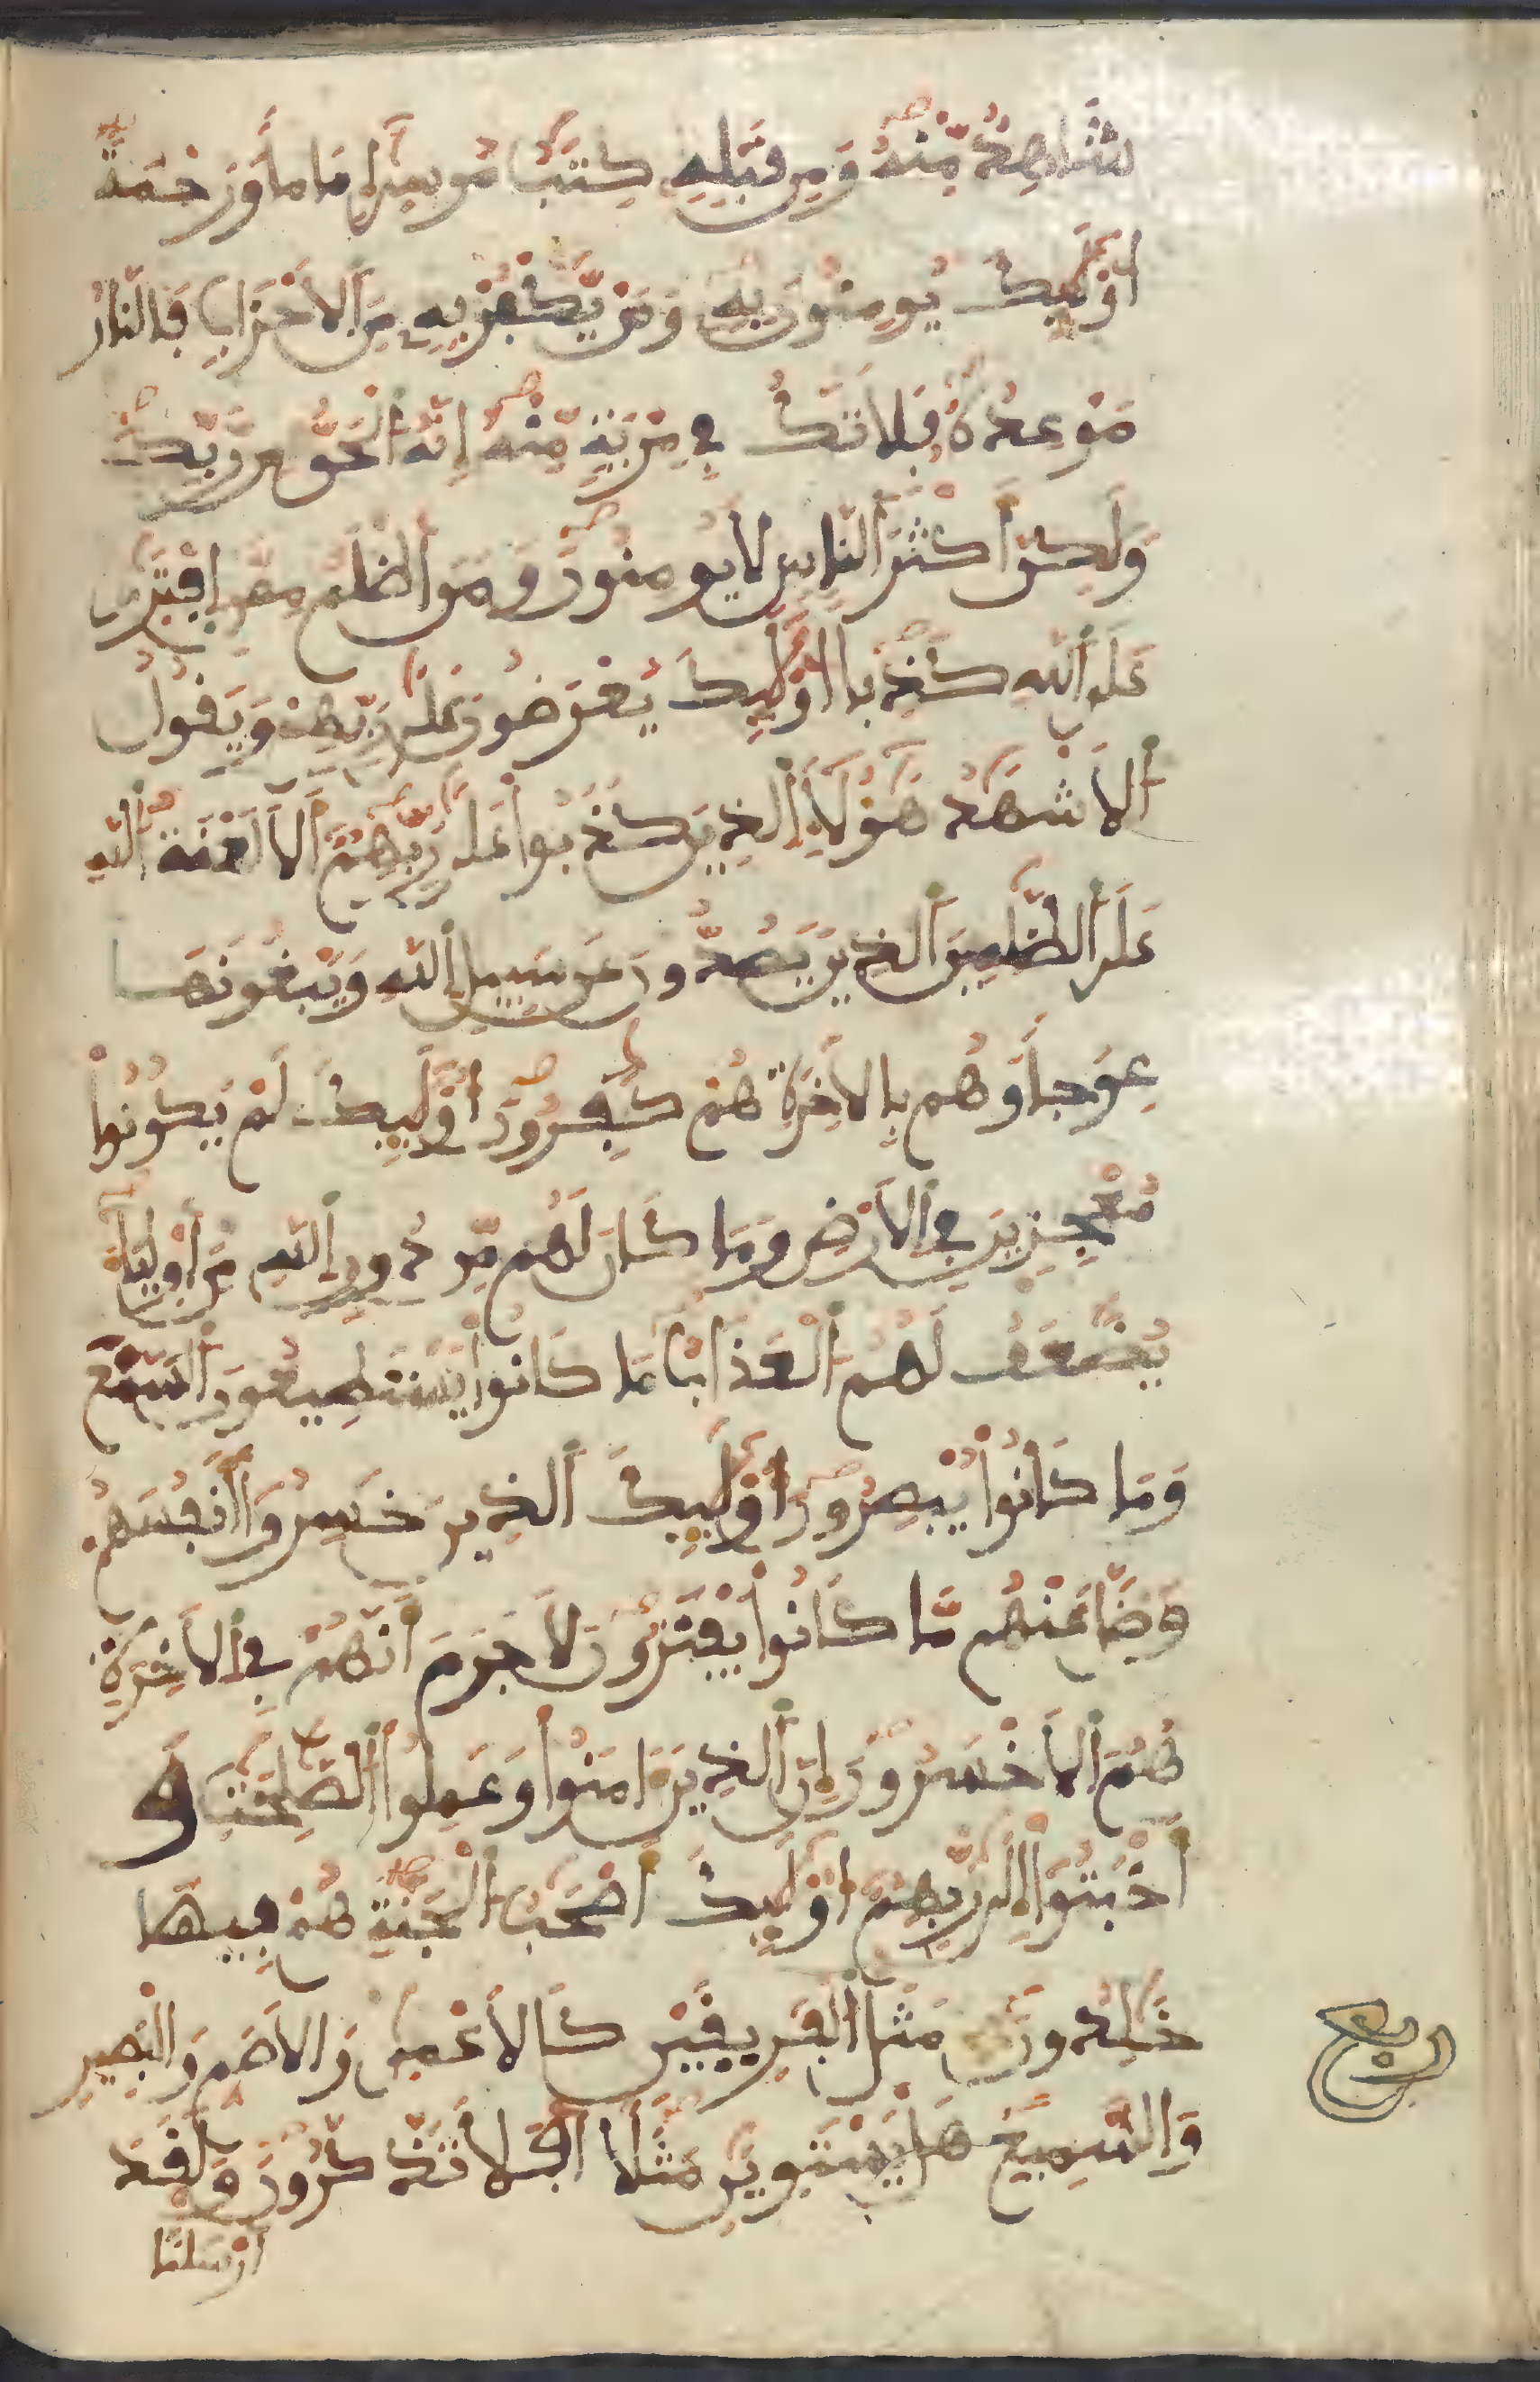 شَاهِدٌ مِّنْهُ وَمِن قَبْلِهِ كِتَٰبُ مُوسَىٰ إِمَامًا وَرَحْمَةً
أُوْلَٰئِكَ يُومِنُونَ بِهِ وَمَنْ يَّكْفُرْ بِهِ مِنَ ٱلَاحْزَابِ فَالنَّارُ
مَوْعِدُهُ فَلَا تَكُ فِي مِرْيَةٍ مِّنْهُ إِنَّهُ ٱلْحَقُّ مِن رَّبِّكَ
وَلَٰكِنَّ أَكْثَرَ ٱلنَّاسِ لَا يُومِنُونَ وَمَنَ اظْلَمُ مِمَّنِ إِفْتَرَىٰ
عَلَى ٱللَّهِ كَذِبًا أُوْلَٰئِكَ يُعْرَضُونَ عَلَىٰ رَبِّهِمْ وَيَقُولُ
ٱلَاشْهَٰدُ هَٰؤُلَآءِ ٱلذِينَ كَذَبُوا عَلَىٰ رَبِّهِمُ أَلَا لَعْنَةُ ٱللَّهِ
عَلَى ٱلظَّٰلِمِينَ ٱلذِينَ يَصُدُّونَ عَن سَبِيلِ ٱللَّهِ وَيَبْغُونَهَا
عِوَجًا وَهُم بِالَاخِرَةِ هُمْ كَٰفِرُونَ أُوْلَٰئِكَ لَمْ يَكُونُوا
مُعْجِزِينَ فِي ٱلَارْضِ وَمَا كَانَ لَهُم مِّن دُونِ ٱللَّهِ مِنَ اوْلِيَآءَ
يُضَٰعَفُ لَهُمُ ٱلْعَذَابُ مَا كَانُوا يَسْتَطِيعُونَ ٱلسَّمْعَ
وَمَا كَانُوا يُبْصِرُونَ أُوْلَٰئِكَ ٱلذِينَ خَسِرُوا أَنفُسَهُمْ
وَضَلَّ عَنْهُم مَّا كَانُوا يَفْتَرُونَ لَا جَرَمَ أَنَّهُمْ فِي ٱلَاخِرَةِ
هُمُ ٱلَاخْسَرُونَ إِنَّ ٱلذِينَ ءَامَنُوا وَعَمِلُوا ٱلصَّٰلِحَٰتِ وَ
أَخْبَتُوا إِلَىٰ رَبِّهِمُ أُوْلَٰئِكَ أَصْحَٰبُ ٱلْجَنَّةِ هُمْ فِيهَا
خَٰلِدُونَ مَثَلُ ٱلْفَرِيقَيْنِ كَالَاعْمَىٰ وَالَاصَمِّ وَالْبَصِيرِ
وَالسَّمِيعِ هَلْ يَسْتَوِيَٰنِ مَثَلًا أَفَلَا تَذَّكَّرُونَ وَلَقَدَ
ارْسَلْنَا
ربع